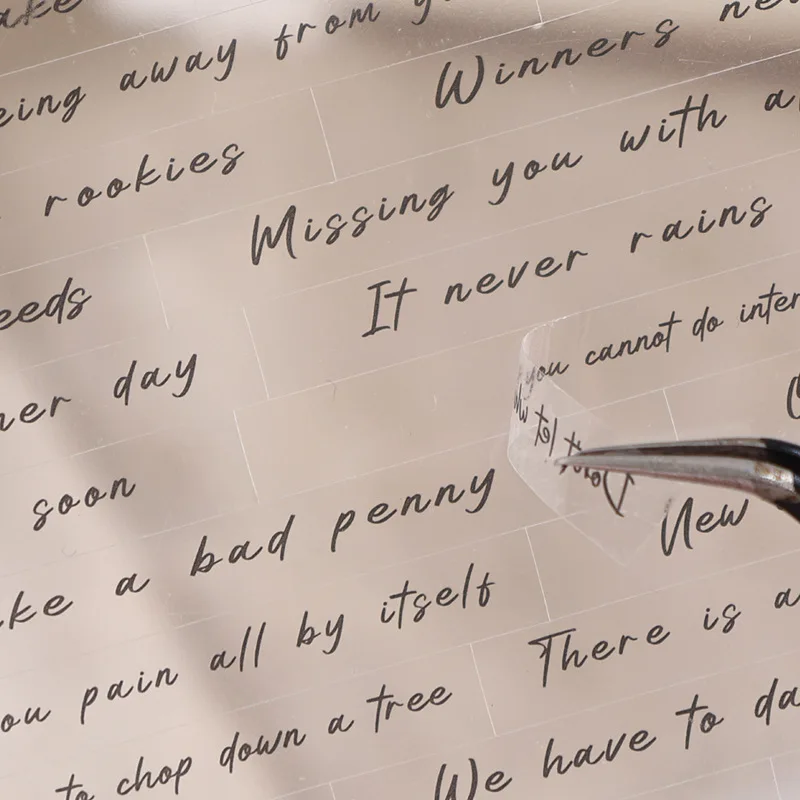 ake
eing away from y
Winners ne
rookies
Missing you with a
eeds
It never rains
her day
you cannot do inter
Don't let wh
soon
New
ke a bad penny
ou pain all by itself
There is a
to chop down a tree
We have to da